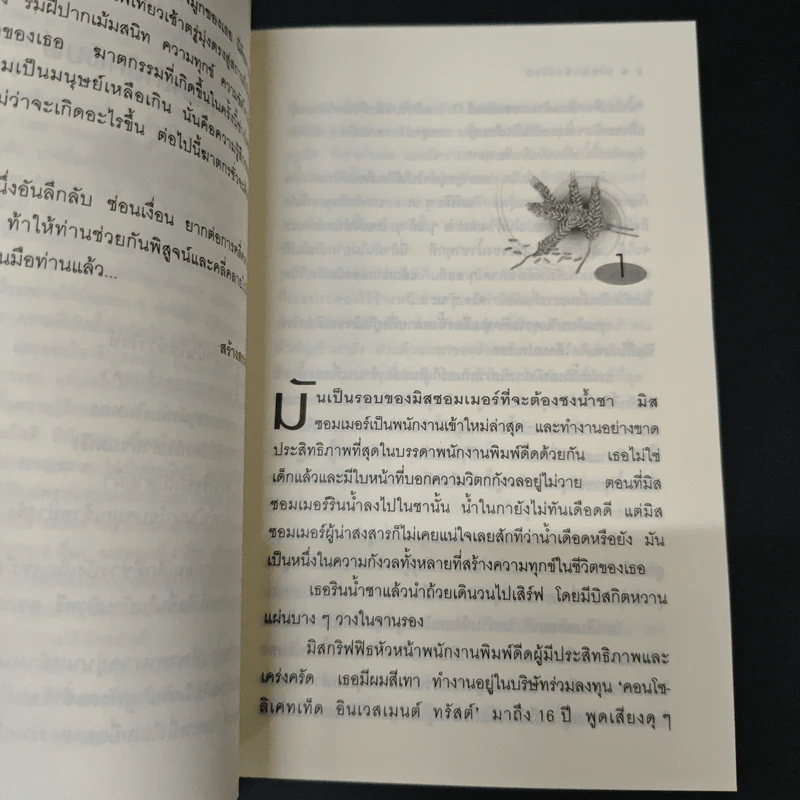 มูกของเธอ
รีมฝีปากเม้มสนิท ความทุกข์
ของเธอ ฆาตกรรมที่เกิดขึ้นในครั้งนี้
มเป็นมนุษย์เหลือเกิน นั่นคือความรู้สึก
ไม่ว่าจะเกิดอะไรขึ้น ต่อไปนี้ฆาตกร
นึ่งอันลึกลับ ซ่อนเงื่อน ยากต่อการ
ท้าให้ท่านช่วยกันพิสูจน์และคลี่คลาย
นมือท่านแล้ว...
1
มันเป็นรอบของมิสซอมเมอร์ที่จะต้องชงน้ำชา มิส
ซอมเมอร์เป็นพนักงานเข้าใหม่ล่าสุด และทำงานอย่างขาด
ประสิทธิภาพที่สุดในบรรดาพนักงานพิมพ์ดีดด้วยกัน เธอไม่ใช่
เด็กแล้วและมีใบหน้าที่บอกความวิตกกังวลอยู่ไม่วาย ตอนที่มิส
ซอมเมอร์รินน้ำลงไปในชานั้น น้ำในกายังไม่ทันเดือดดี แต่มิส
ซอมเมอร์ผู้น่าสงสารก็ไม่เคยแน่ใจเลยสักทีว่าน้ำเดือดหรือยัง มัน
เป็นหนึ่งในความกังวลทั้งหลายที่สร้างความทุกข์ในชีวิตของเธอ
เธอรินน้ำชาแล้วนำถ้วยเดินวนไปเสิร์ฟ โดยมีบิสกิตหวาน
แผ่นบาง ๆ วางในจานรอง
มิสกริฟฟิธหัวหน้าพนักงานพิมพ์ดีดผู้มีประสิทธิภาพและ
เคร่งครัด เธอมีผมสีเทา ทำงานอยู่ในบริษัทร่วมลงทุน ‘คอนโซ-
ลิเคทเท็ด อินเวสเมนต์ ทรัสต์’ มาถึง 16 ปี พูดเสียงดุ ๆ